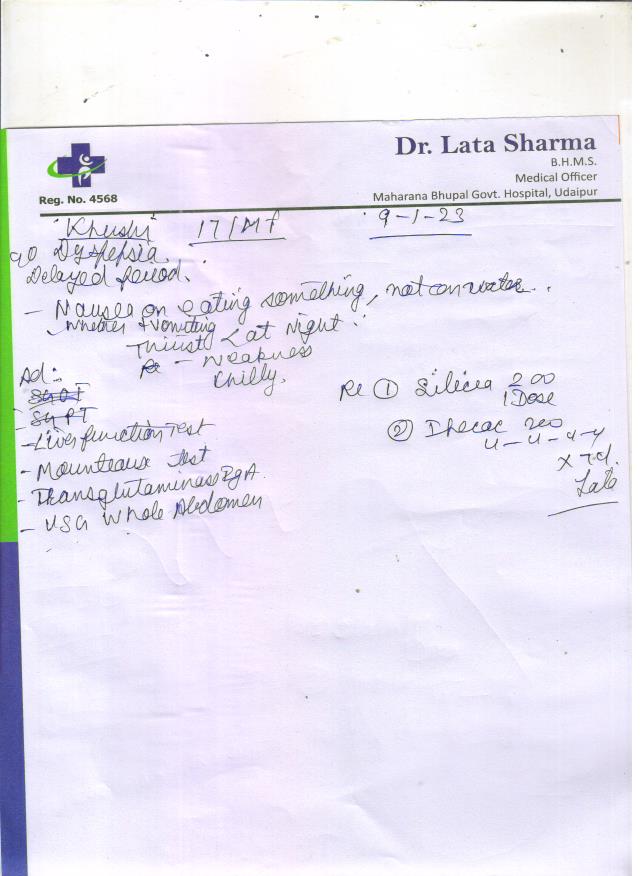 Dr. Lata Sharma
B.H.M.S.
Medical Officer
Maharana Bhupal Govt. Hospital, Udaipur
Reg. No. 4568
"Khushi" 17/ 9-1-23
Dyspepsia.
Delayed period.
- Nausea on eating something, not on water.
vomiting
Thirst < at Night.
- Weakness
Chilly.
Ad:-
- SGPT
- Liver function Test
- Mounteaux Test
- Transglutaminase IgA
- USG Whole Abdomen
① Silicea 200
1 Dose
② Ipecac 200
4-4-4-4
x 7d.
Lata